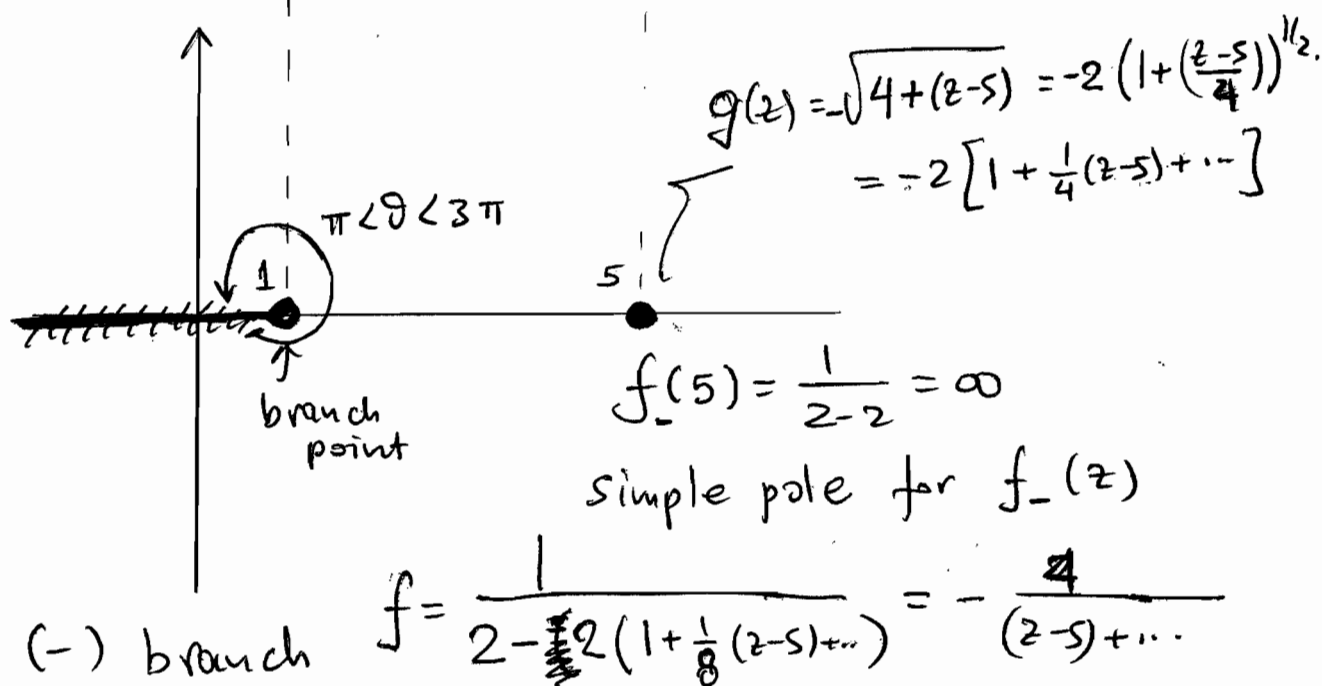 g(z) = -√(4+(z-5)) = -2 (1+((z-5)/4))^{1/2}.
= -2 [1 + 1/4 (z-5) + ...]
π<θ<3π
1
5
branch
point
f_-(5) = 1/(2-2) = ∞
simple pole for f_-(z)
(-) branch f = 1/(2-2(1+1/8(z-5)+...)) = - 4/((z-5)+...)